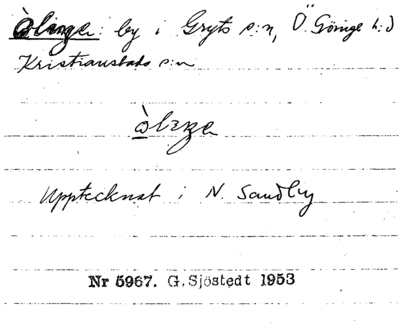 by i Gryts s:n, Ö. Göinge h:d
Kristianstads
Upptecknat i N. Sandby
Nr 5967. G. Sjöstedt 1953